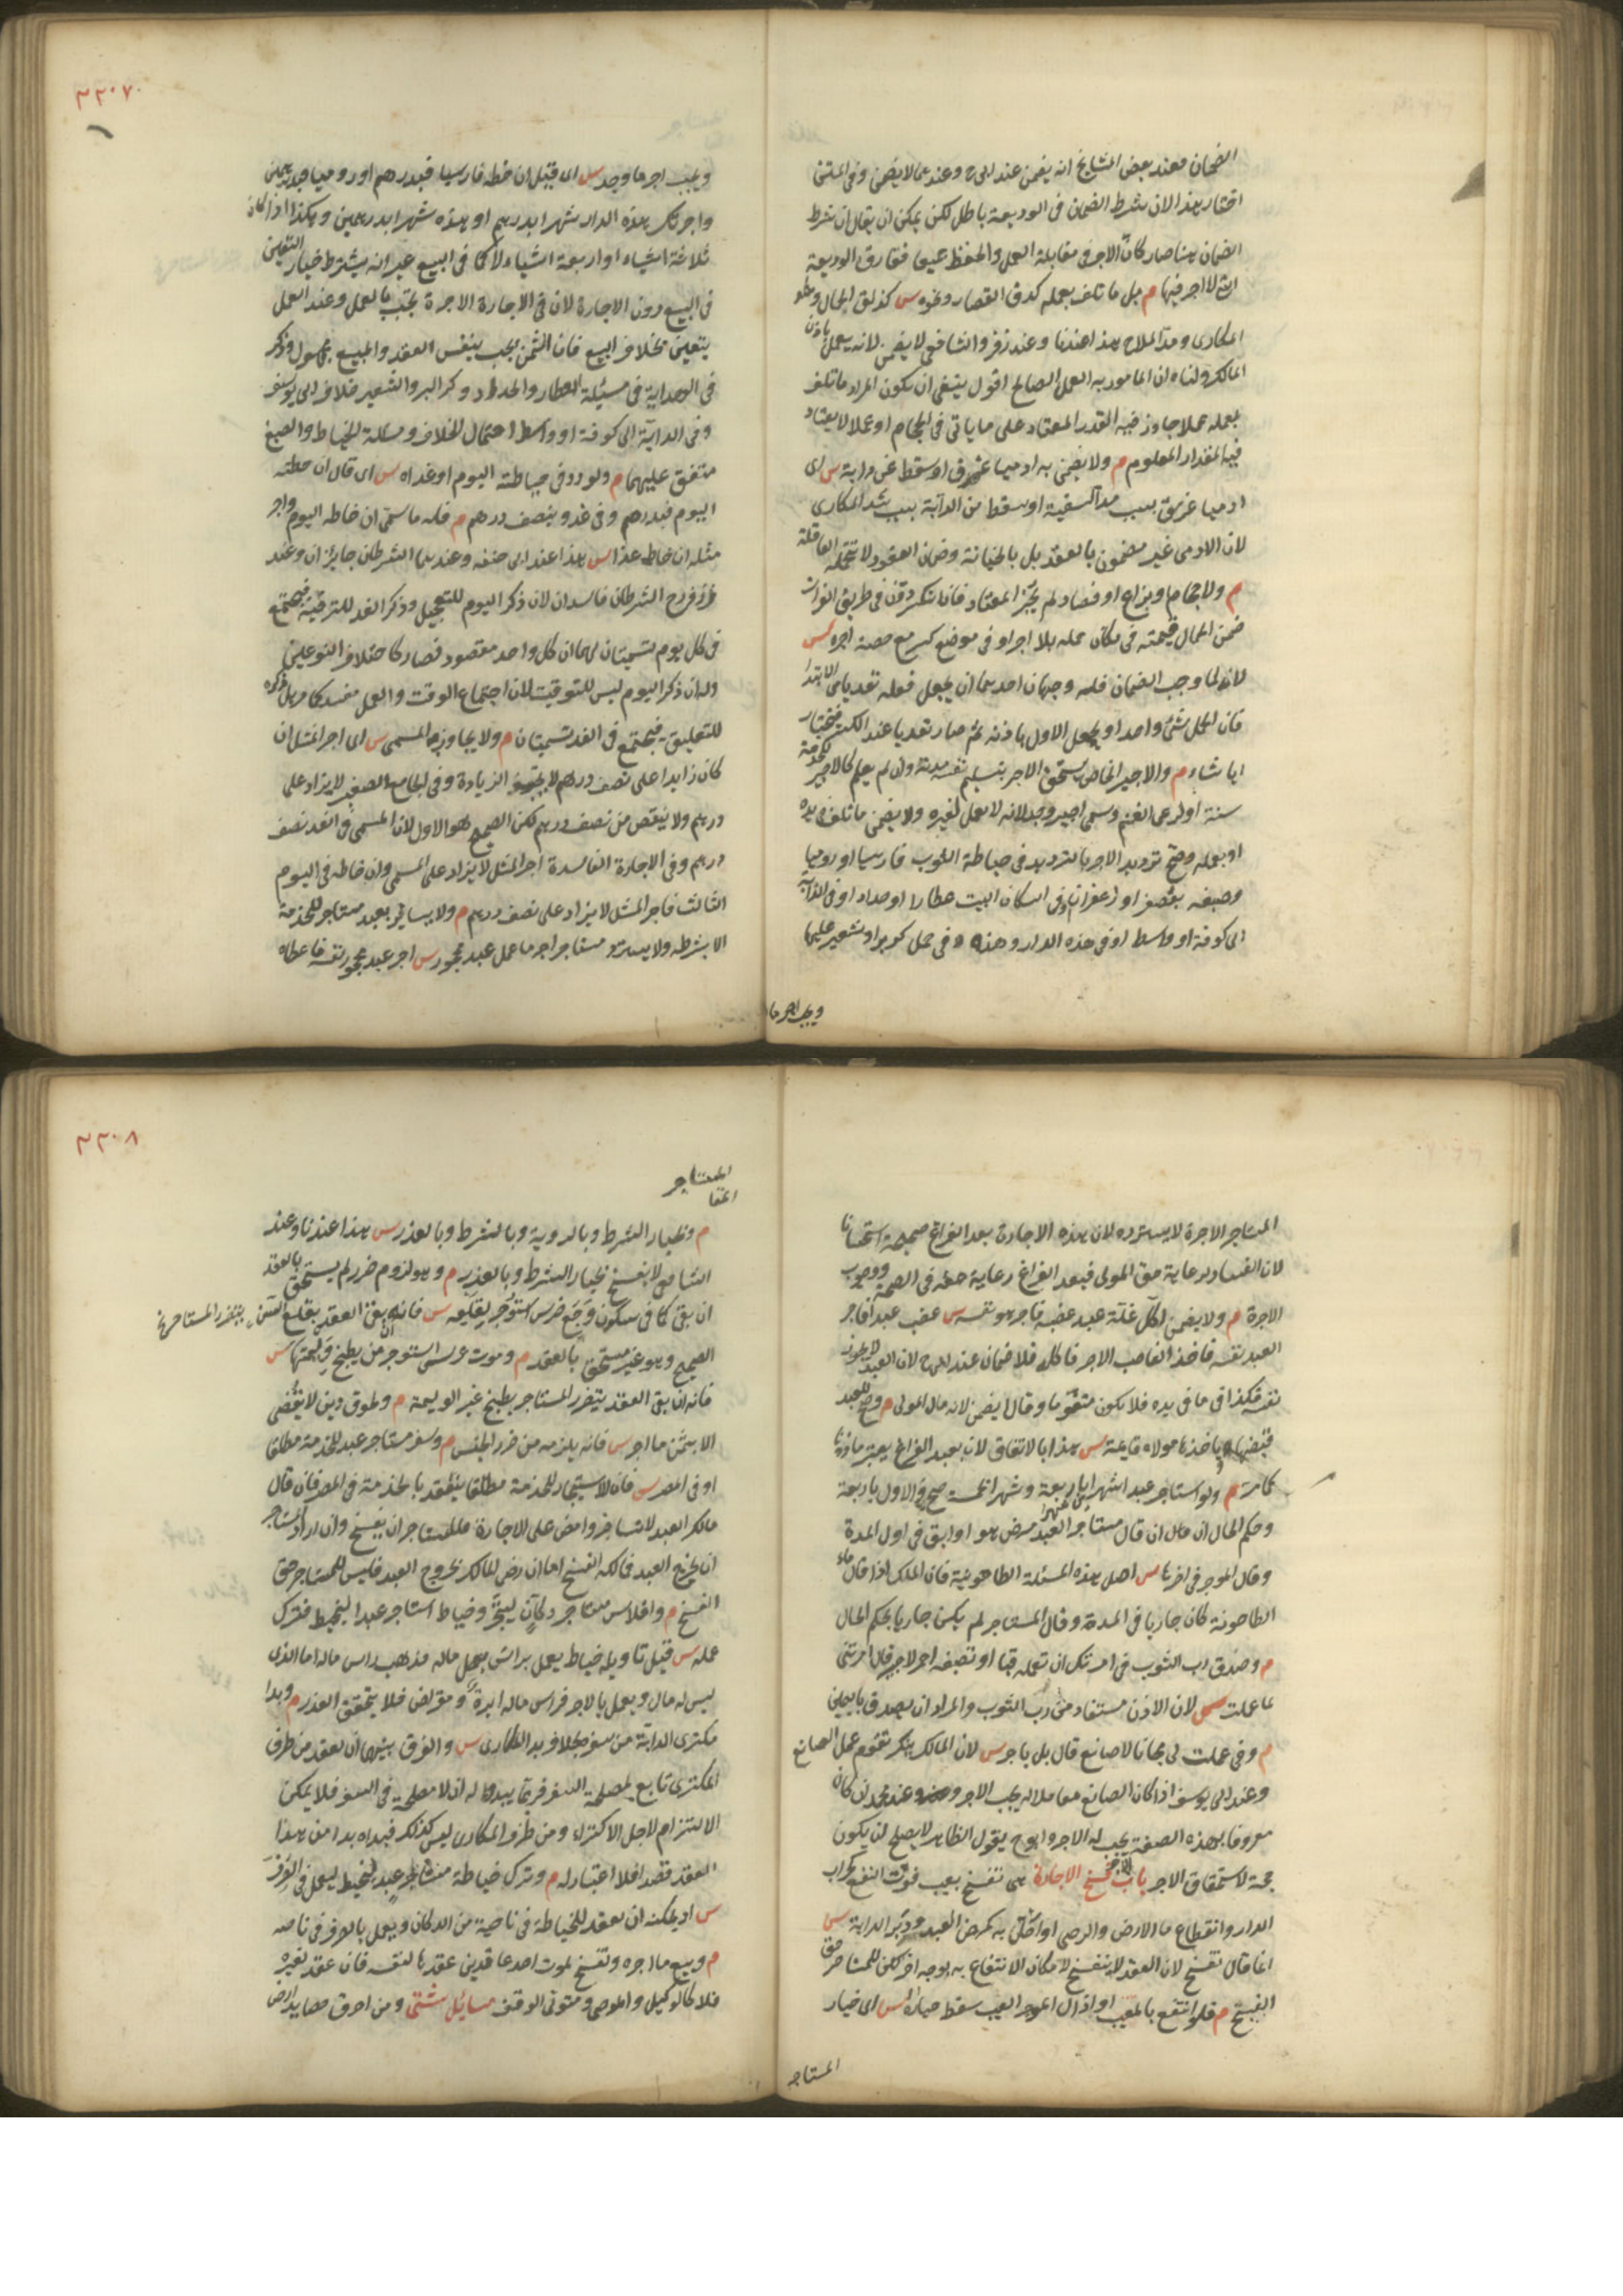 الضمان فعند بعض المشايخ انه يضمن عند ابى ح وعندهما لا يضمن وفى
اختار هذا لان شرط الضمان فى الوديعة باطل لكن يمكن ان يقال ان شرط
الضمان هنا صار كأن الاجر فى مقابلة العمل والحفظ جميعا ففارق الوديعة
لا اجر فيها م بل ما تلف بعمله كدق القصار ونحوه س كذلق الحمال
المكارى ومد الملاح هذا عندنا وعند زفر والشافعى لا يضمن لانه يعمل باذن
المالك ولنا ان المامور به العمل الصالح اقول ينبغى ان يكون المراد ما تلف
بعمله عملا جاوز فيه القدر المعتاد على ما ياتى فى الحجام او عملا لا يعتاد
فيه المقدار المعلوم م ولا يضمن به ادميا غرق او سقط عن دابة س اى
ادميا غرق بسبب مد السفينة او سقط من الدابة بسبب شد المكارى
لان الادمى غير مضمون بالعقد بل بالجناية وضمان العقود لا تتحمله العاقلة
م ولا حجام او بزاع او فصاد لم يجز المعتاد فان انكسر دن فى طريق الفرات
ضمن الحمال قيمته فى مكان حمله بلا اجر او فى موضع كسر مع حصة اجره س
لانه لما وجب الضمان فله وجهان احدهما ان يجعل فعله تعديا من الابتدا
فان الحمل شئ واحد او يجعل الاول باذنه ثم صار تعديا عند الكسر فيختار
ايا شاء م والاجير الخاص يستحق الاجر بتسليم نفسه مدته وان لم يعمل كالاجير للخدمة
سنة او لرعى الغنم وسمى اجير وحد لانه لا يعمل لغيره ولا يضمن ما تلف بيده
او بعمله وصح ترديد الاجر بالترديد فى خياطة الثوب فارسيا او روميا
وصبغه بعصفر او زعفران وفى اسكان البيت عطارا او حدادا وفى الدابة
الى كوفة او واسط او فى هذه الدار وهذه وفى حمل كر بر او شعير عليها
ويجب اجر ما
٣٣٠٧
ويجب اجر ما وجد س اى قيل ان خطه فارسيا فبدرهم او روميا فبدرهمين
واجرتك هذه الدار شهرا بدرهم او هذه شهرا بدرهمين وهكذا اذا كان
ثلاثة اشياء او اربعة اشياء لا كما فى البيع غير انه يشترط خيار التعيين
فى البيع دون الاجارة لان فى الاجارة الاجرة تجب بالعمل وعند العمل
يتعين بخلاف البيع فان الثمن يجب بنفس العقد والمبيع مجهول وذكر
فى الهداية فى مسئلة العطار والحداد وكر البر والشعير خلاف ابى يوسف
وفى الدابة الى كوفة او واسط احتمال الخلاف ومسئلة الخياط والصبغ
متفق عليهما م ولو ردد فى خياطته اليوم او غدا س اى قال ان خطته
اليوم فبدرهم وفى غد وبنصف درهم م فله ما سمى ان خاطه اليوم واجر
مثله ان خاطه غدا س هذا عند ابى حنفه وعندهما الشرطان جايزان وعند
زفر رح الشرطان فاسدان لان ذكر اليوم للتعجيل وذكر الغد للترفيه فيجتمع
فى كل يوم تسميتان لهما ان كل واحد مقصود فصار كاختلاف النوعين
وله ان ذكر اليوم ليس للتوقيت لان اجتماع الوقت والعمل مفسد كما مر بل ذكره
للتعليق فيجتمع فى الغد تسميتان م ولا يجاوز به المسمى س اى اجر المثل ان
كان زايدا على نصف درهم لا يجب الزيادة وفى الجامع الصغير لا يزاد على
درهم ولا ينقص من نصف درهم لكن الصحيح هو الاول لان المسمى فى الغد نصف
درهم وفى الاجارة الفاسدة اجر المثل لا يزاد على المسمى وان خاطه فى اليوم
الثالث فاجر المثل لا يزاد على نصف درهم م ولا يسافر بعبد مستاجر للخدمة
الا بشرطه ولا يسترد مستاجر اجر ما عمل عبد محجور س اجر عبد محجور نفسه فاعطاه
المستاجر الاجرة لا يسترده لان هذه الاجارة بعد الفراغ صحيحة استحسانا
لان الفساد لرعاية حق المولى فبعد الفراغ رعاية حقه فى الصحة ووجوب
الاجرة م ولا يضمن اكل غلة عبد غصبه فاجر هو نفسه س غصب عبد افاجر
العبد نفسه فاخذ الغاصب الاجر فاكله فلا ضمان عند ابى ح لان العبد لا يحرز
نفسه فكذا فى ما فى يده فلا يكون متقوما وقالا يضمن لانه مال المولى م وصح للعبد
قبضها وياخذها مولاه قايمة س هذا بالاتفاق لان بعد الفراغ يعتبر ماذونا
كما مر م ولو استاجر عبدا شهرا باربعة وشهرا بخمسة صح والاول باربعة
وحكم الحال ان قال مستاجر العبد مرض هو او ابق فى اول المدة
وقال الموجر فى اخرها س اصل هذه المسئلة الطاحونة فان المالك اذا قال ماء
الطاحونة كان جاريا فى المدة وقال المستاجر لم يكن جاريا يحكم الحال
م وصدق رب الثوب فى امرتك ان تعمله قبا او تصبغه احمر لا اجير قال امرتنى
بما عملت س لان الاذن مستفاد من رب الثوب والمراد ان يصدق باليمين
م وفى عملت لى مجانا لا صانع قال بل باجر س لان المالك ينكر تقوم عمل الصانع
وعند ابى يوسف اذا كان الصانع معاملا له يجب الاجر وعند محمد ان كان
معروفا بهذه الصفة يجب له الاجر وابو ح يقول الظاهر لا يصلح ان يكون
حجة لاستحقاق الاجر باب فسخ الاجارة هى تنفسخ بعيب فوت النفع كخراب
الدار وانقطاع ماء الارض والرحى او اخل به كمرض العبد ودبر الدابة س
انما قال تفسخ لان العقد لا ينفسخ لامكان الانتفاع به بوجه اخر لكن للمستاجر حق
الفسخ م فلو انتفع بالمعيب او ازال الموجر العيب سقط خياره س اى خيار
المستاجر
٣٣٠٨
المستاجر
م وبخيار الشرط وبالروية وبالشرط وبالعذر س هذا عندنا وعند
الشافعى لا يفسخ بخيار الشرط وبالعذر م وهو لزوم ضرر لم يستحق بالعقد
ان بقى كما فى سكون وجع ضرس استوجر لقلعه س فانه ان بقى العقد بقلع السن يتضرر المستاجر
الصحيح وهو غير مستحق بالعقد م وموت عرس استوجر من يطبخ وليمتها س
فانه ان بقى العقد يتضرر المستاجر بطبخ غير الوليمة م ولحوق دين لا يقضى
الا بثمن ما اجر س فانه يلزمه من ضرر الحبس م وسفر مستاجر عبد للخدمة مطلقا
او فى المصر س فان الاستيجار للخدمة مطلقا ينعقد بالخدمة فى المصر فان قال
مالك العبد لا تسافر وامض على الاجارة فللمستاجر ان يفسخ وان اراد المستاجر
ان يخرج العبد فمالكه الفسخ اما ان رضى المالك بخروج العبد فليس للمستاجر حق
الفسخ م وافلاس مستاجر دكان ليتجر وخياط استاجر عبدا ليخيط فترك
عمله س قيل تاويله خياط يعمل براس ماله فذهب راس ماله اما الذى
ليس له مال ويعمل بالاجر فراس ماله ابرة ومقراض فلا يتحقق العذر م وبدا
مكترى الدابة من سفر بخلاف بد المكارى س والفرق بينهما ان العقد من طرف
المكترى تابع لمصلحة السفر فربما يبدو له ان لا مصلحة فى السفر فلا يمكن
الالتزام لاجل الاكترا ومن طرف المكارى ليس كذلك فبداه بدا من هذا
العقد قصدا فلا اعتبار له م وترك خياطة مستاجر عبد ليخيط ليعمل فى الصرف
س اذ يمكنه ان يقعد للخياطة فى ناحية من الدكان ويعمل بالصرف فى ناحيه
م وبيع ما اجره وتفسخ بموت احد عاقدين عقدها لنفسه فان عقد لغيره
فلا كالوكيل والوصى ومتولى الوقف مسايل شتى ومن احرق حصايد ارض